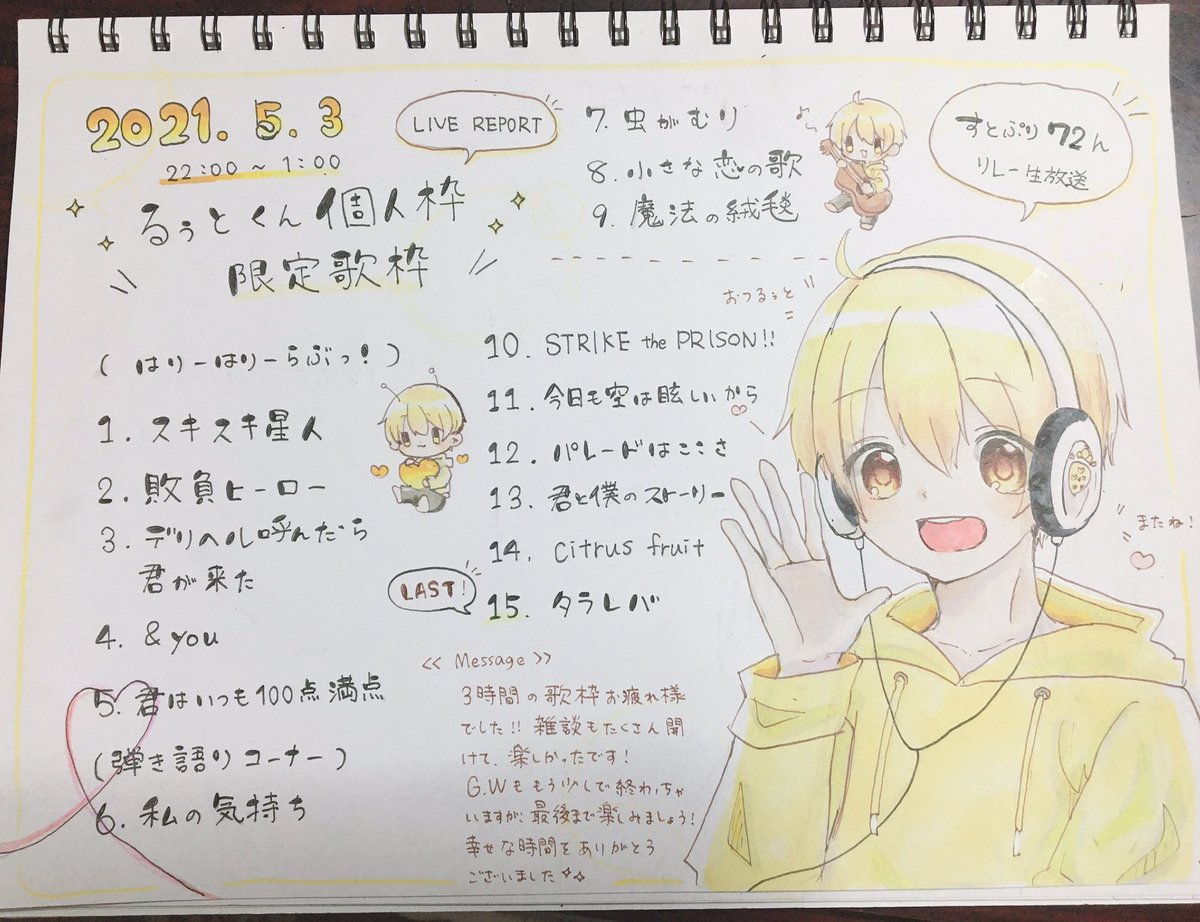 2021. 5. 3
22:00 ~ 1:00
LIVE REPORT
るぅとくん個人枠
限定歌枠
(はりーはりーらぶっ!)
1. スキスキ星人
2. 敗負ヒーロー
3. デリヘル呼んだら
君が来た
4. & you
5. 君はいつも100点満点
(弾き語りコーナー)
6. 私の気持ち
7. 虫がむり
8. 小さな恋の歌
9. 魔法の絨毯
10. STRIKE the PRISON!!
11. 今日も空は眩しいから
12. パレードはここさ
13. 君と僕のストーリー
14. citrus fruit
LAST!
15. タラレバ
すとぷり72h
リレー生放送
おつるぅと
またね!
<< Message >>
3時間の歌枠お疲れ様
でした!! 雑談もたくさん聞
けて、楽しかったです!
G.Wももう少しで終わっちゃ
いますが、最後まで楽しみましょう!
幸せな時間をありがとう
ございました